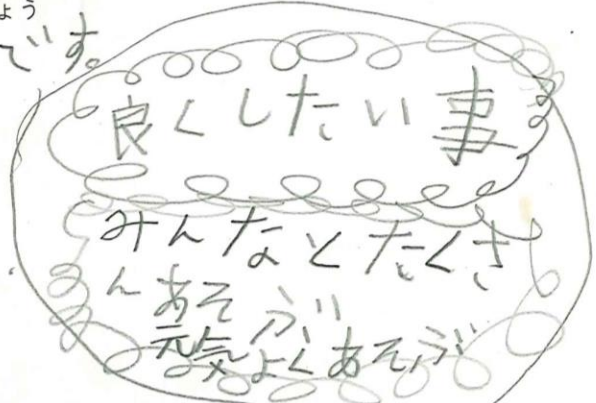 ょう
です。
良くしたい事
みんなとたくさ
んあそぶ
元気よくあそぶ